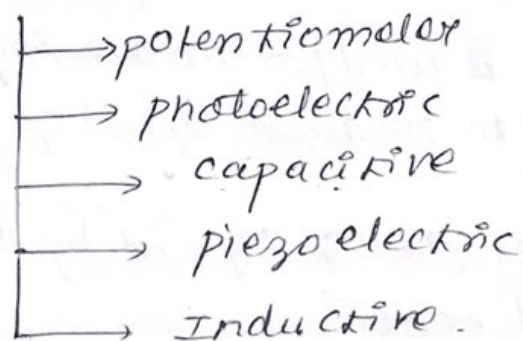 potentiometer
photoelectric
capacitive
piezoelectric
Inductive.